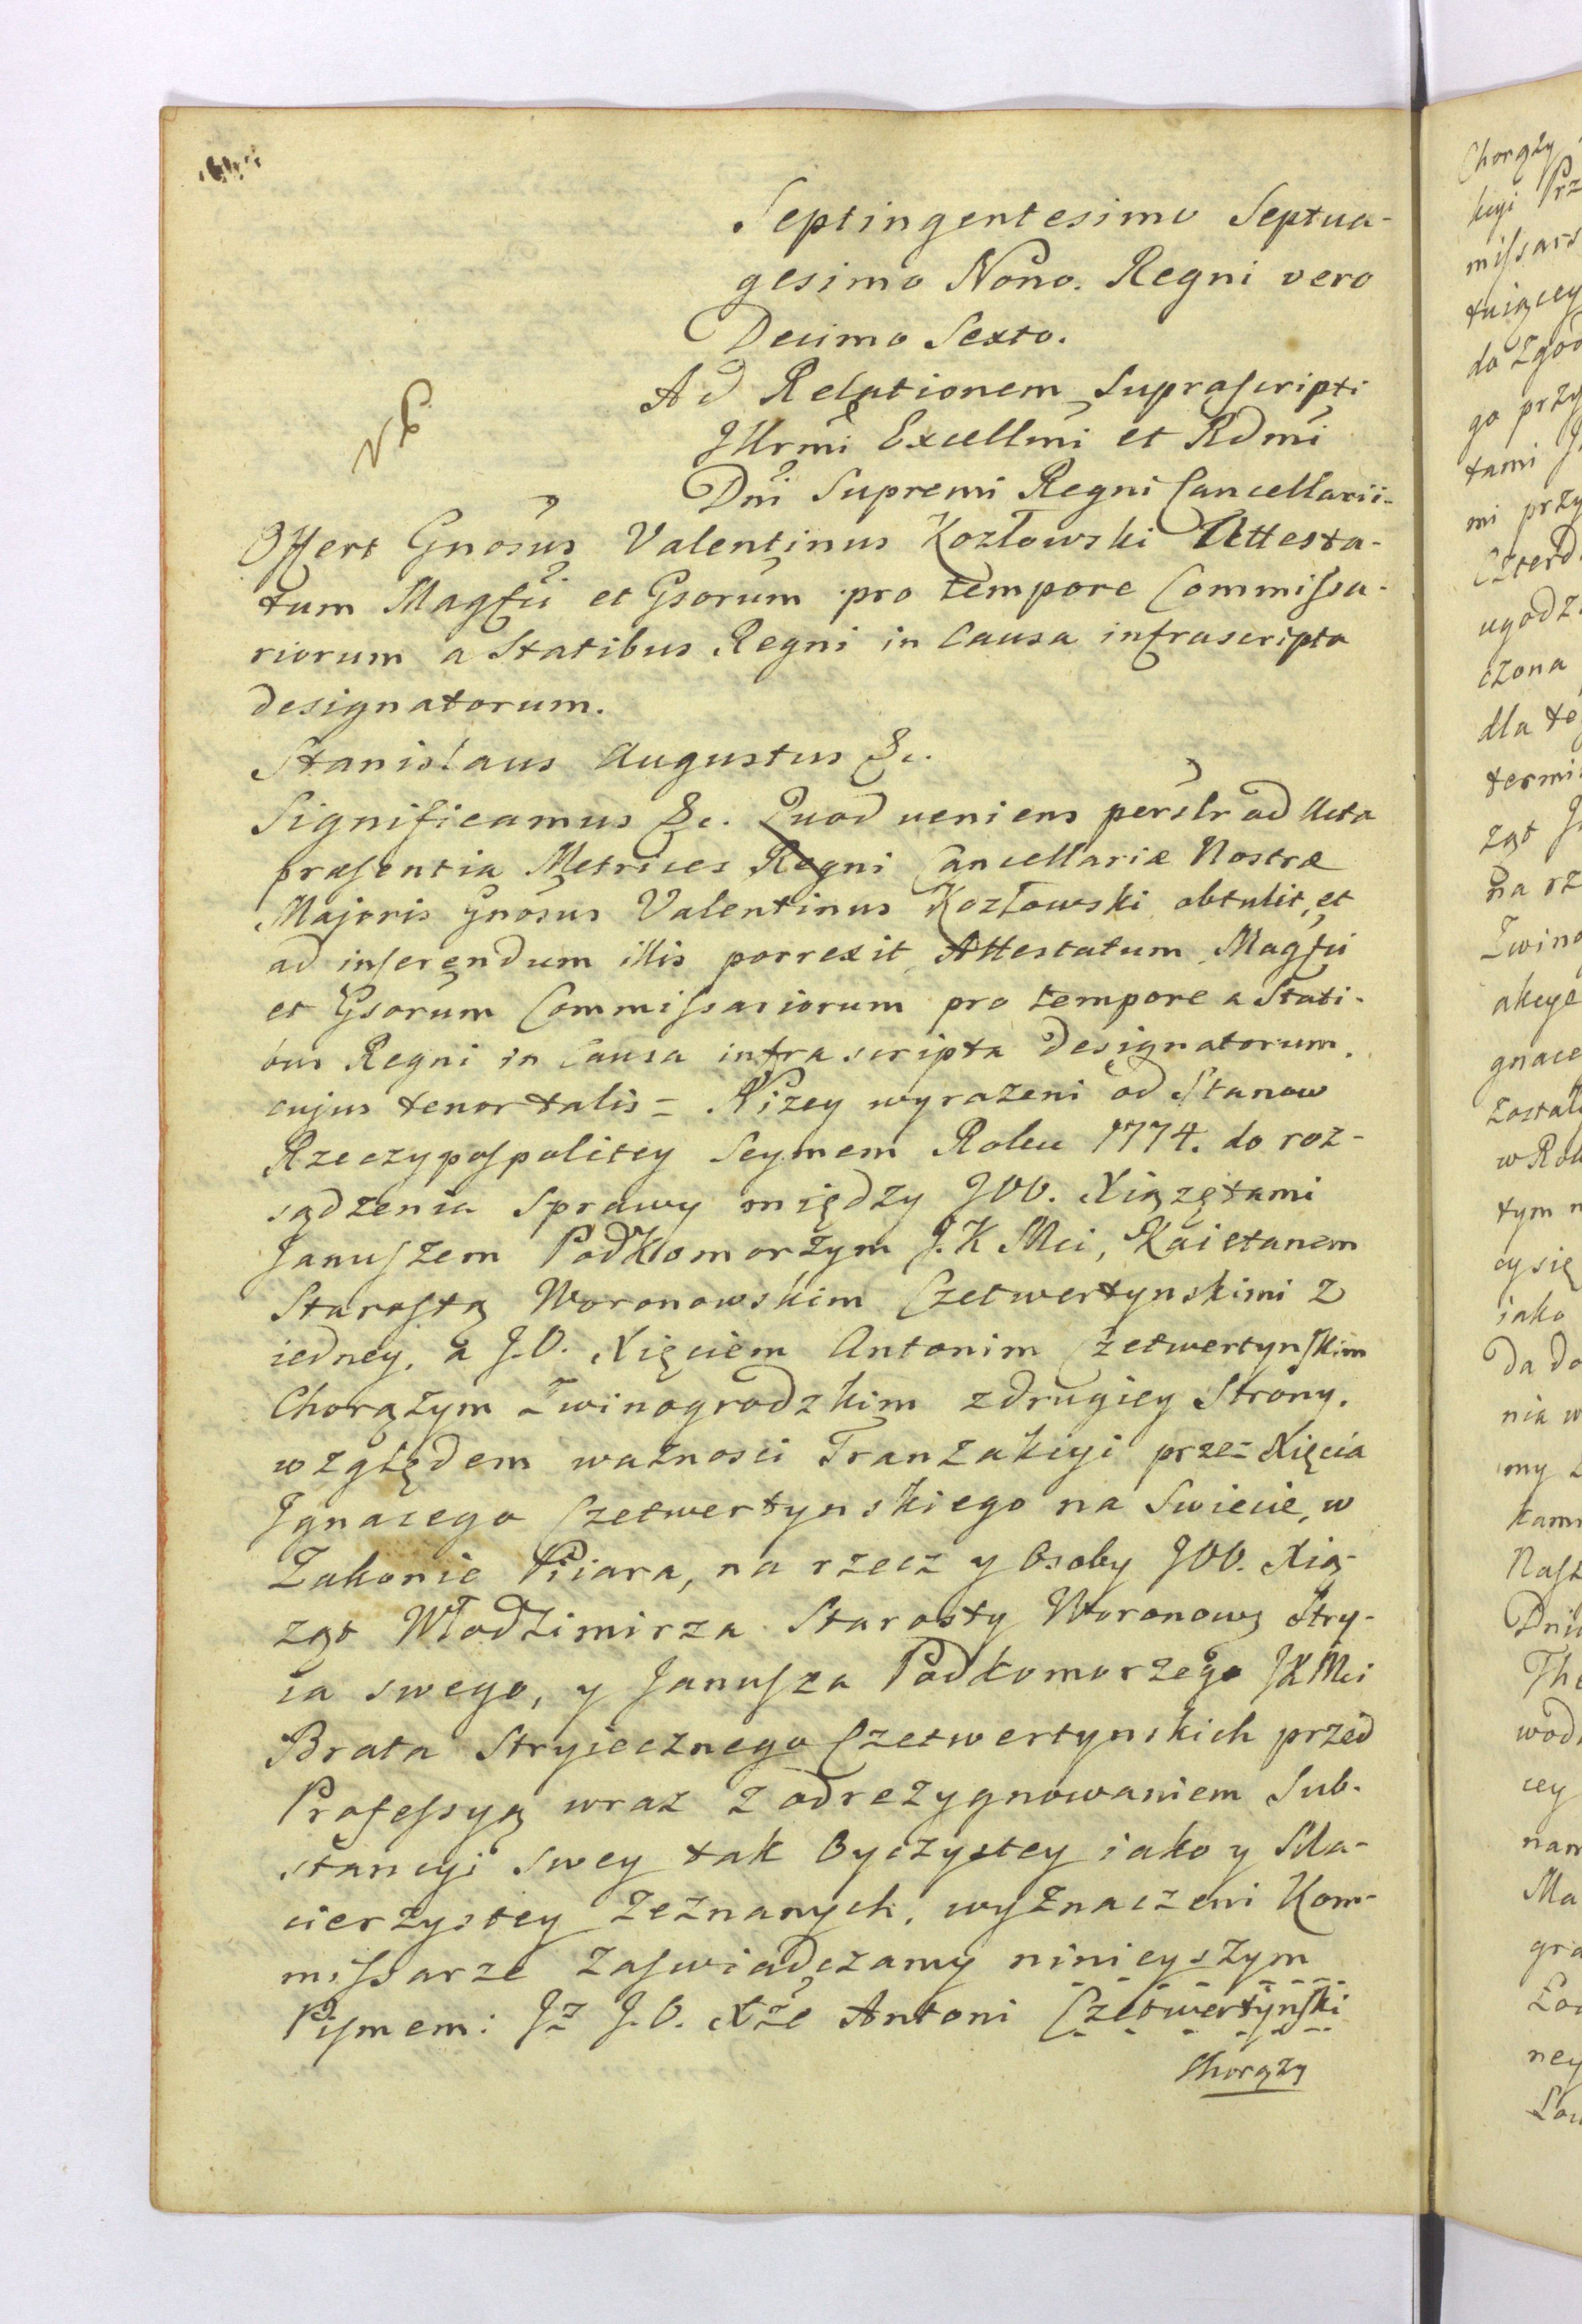 Septingentesimo Septua-
gesimo Nono. Regni vero
Decimo Sexto.
Ad Relationem Suprascripti
Illrmi Excellmi et Rdmi
Dni Supremi Regni Cancellarii.
Offert Gnosus Valentinus Kozłowski Attesta-
tum Magfci et Gsorum pro tempore Commissa-
riorum a Statibus Regni in Causa infrascripta
designatorum.
Stanislaus Augustus &c.
Significamus &c. Quod veniens perslr ad Acta
præsentia Metrices Regni Cancellariæ Nostræ
Majoris Gnosus Valentinus Kozłowski obtulit, et
ad inserendum illis porrexit Attestatum Magfci
et Gsorum Commissariorum pro tempore a Stati-
bus Regni in Causa infrascripta designatorum.
cujus tenor talis = Niżey wyrazeni od Stanow
Rzeczypospolitey Seymem Roku 1774. do roz-
sądzenia Sprawy między JOO. Xiążętami
Januszem Podkomorzym J.K Mci, Kaietanem
Starostą Woronowskim Czetwertynskimi z
iedney, a J.O. Xięciem Antonim Czetwertynskim
Chorążym Zwinogrodzkim z drugiey Strony.
względem ważnosci Tranzakcyi przez Xięcia
Ignacego Czetwertynskiego na Swiecie, w
Zakonie Piiara, na rzecz y Osoby JOO. Xią-
żąt Włodzimirza Starosty Woronowg Stry-
ia swego, y Janusza Podkomorzego JKMci
Brata Stryiecznego Czetwertynskich przed
Professyą wraz z odrezygnowaniem Sub-
stancyi swey tak Oyczystey iako y Ma-
cierzystey zeznanych, wyznaczeni Kom-
missarze zaswiadczamy ninieyszym
Pismem: Iż J.O. Xże Antoni Czetwertynski
Chorąży
Chorąży
kiyi Prz
missars
tuiącey
do Zgod
go przy
tami
mi przy
Czterd
ugodz
czona
dla te
termi
żąt
na rz
Zwino
akcye
gnace
został
w Rok
tym n
cy się
iako
da do
nia w
my
kam
Nast
Dni
The
wod
cey
nam
Ma
gra
ney